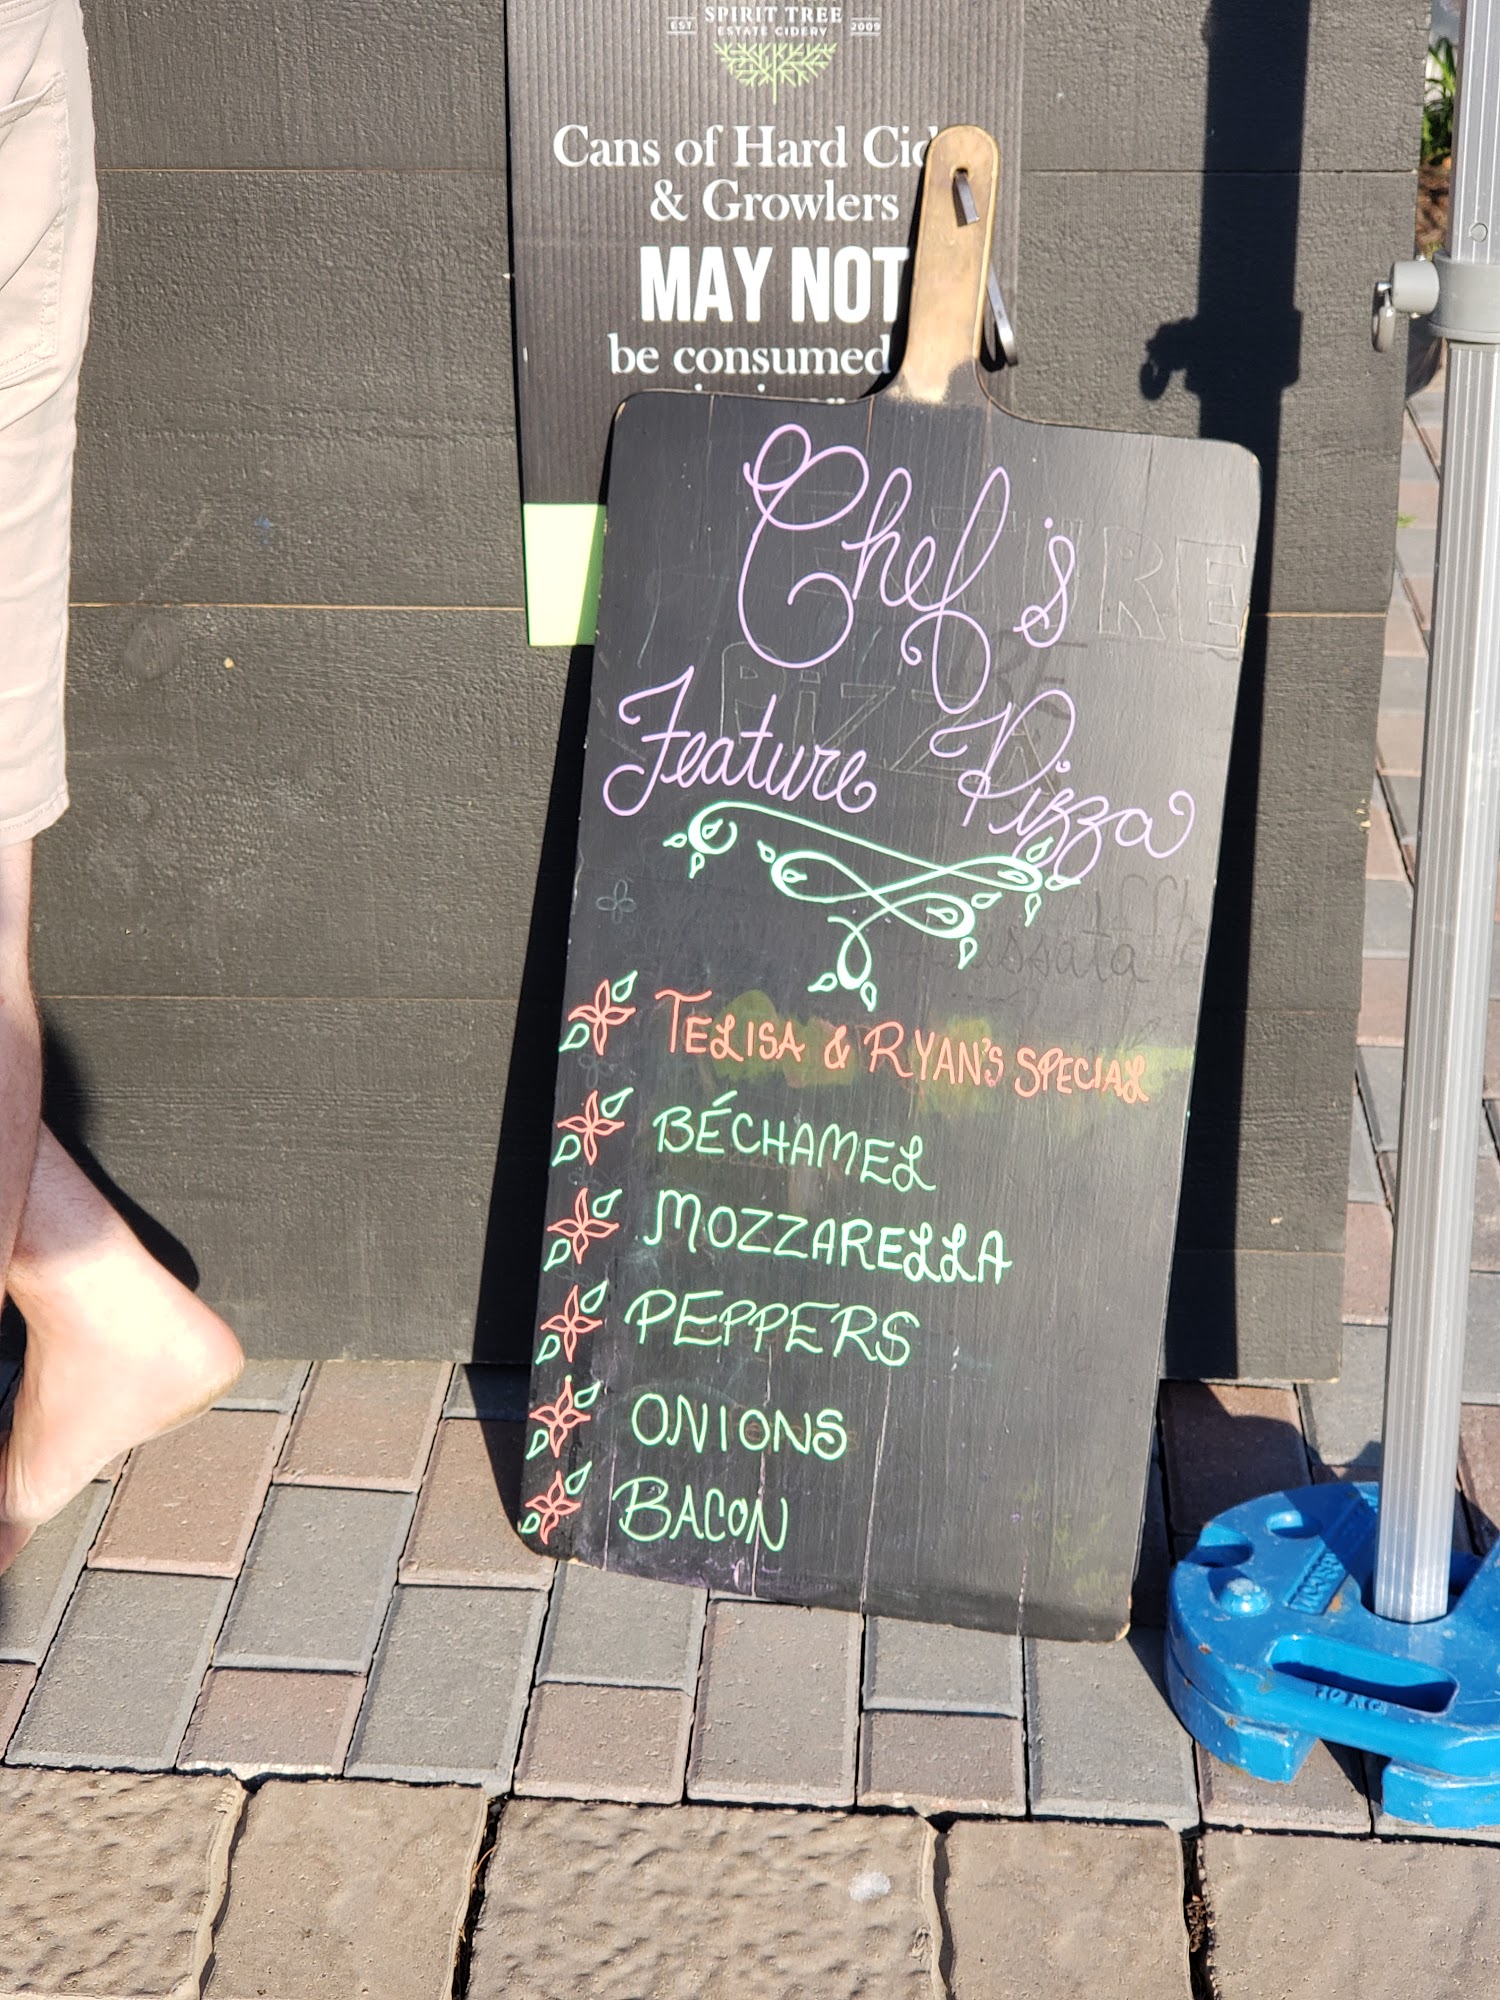 SPIRIT TREE
EST ESTATE CIDERY 2009
Cans of Hard
& Growlers
MAY NOT
be consumed
Chef's
Feature Pizza
TELISA & RYAN'S SPECIAL
BÉCHAMEL
MOZZARELLA
PEPPERS
ONIONS
BACON
10 KG